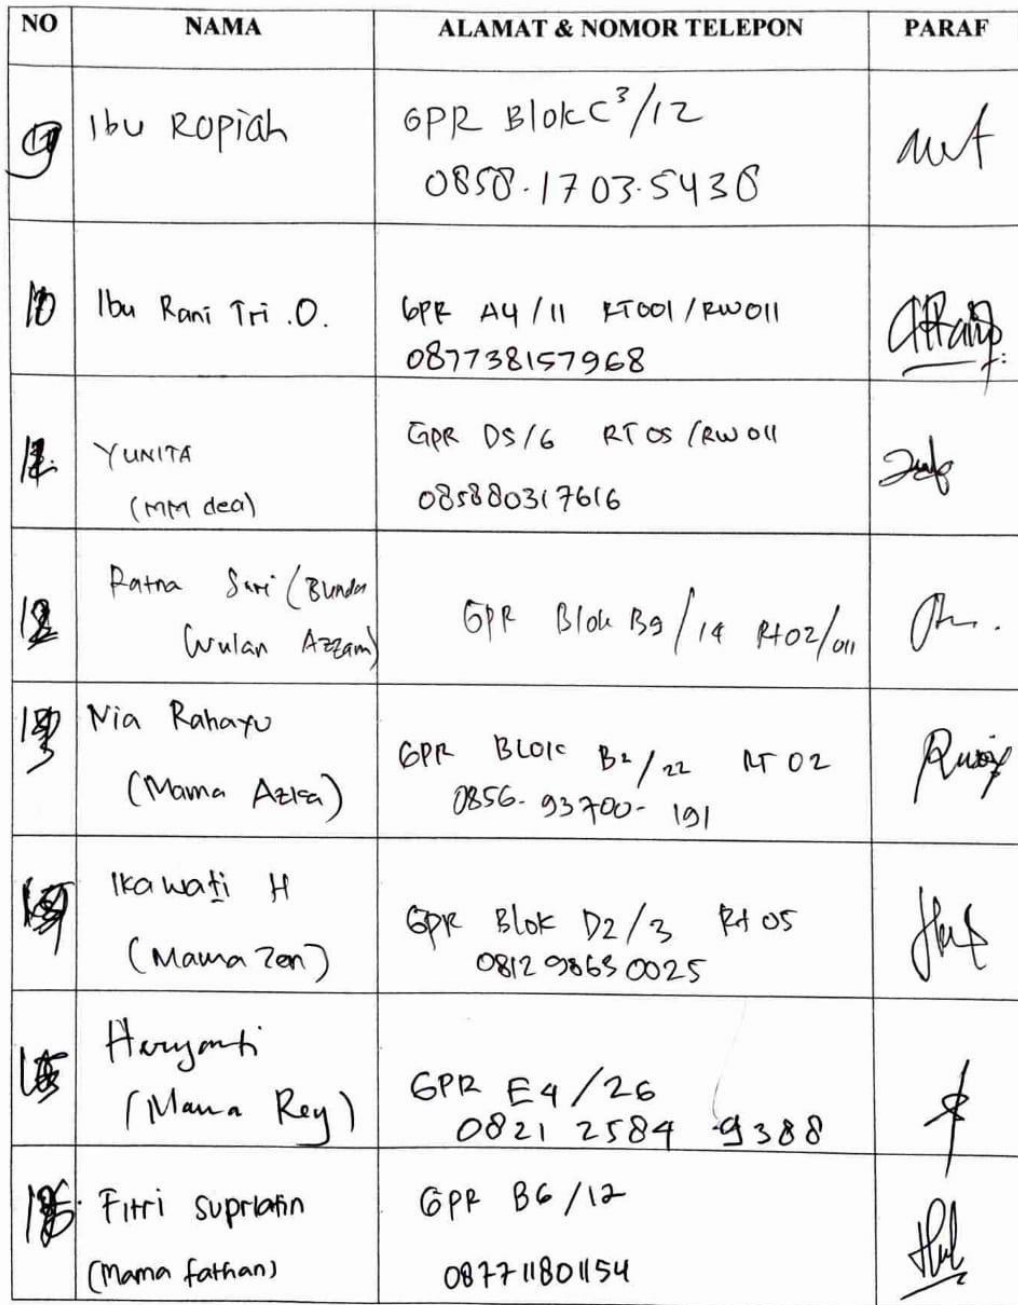 NO NAMA ALAMAT & NOMOR TELEPON PARAF
9 Ibu Ropiah GPR Blok C3/12
0858.1703.5438
10 Ibu Rani Tri .O. GPR A4/11 RT001/RW011
087738157968
11. YUNITA GPR D5/6 RT 05/RW 011
(MM dea) 085880317616
12 Ratna Sari (Bunda
Wulan Azzam) GPR Blok B9/14 Rt02/011
13 Nia Rahayu
(Mama Aziza) GPR BLOK B2/22 RT 02
0856-93700-191
14 Ikawati H
(Mama Zen) GPR Blok D2/3 Rt 05
0812 9865 0025
15 Haryanti
(Mama Rey) GPR E4/26
0821 2584 9388
16. Fitri Supriatin GPR B6/12
(Mama fathan) 087711801154